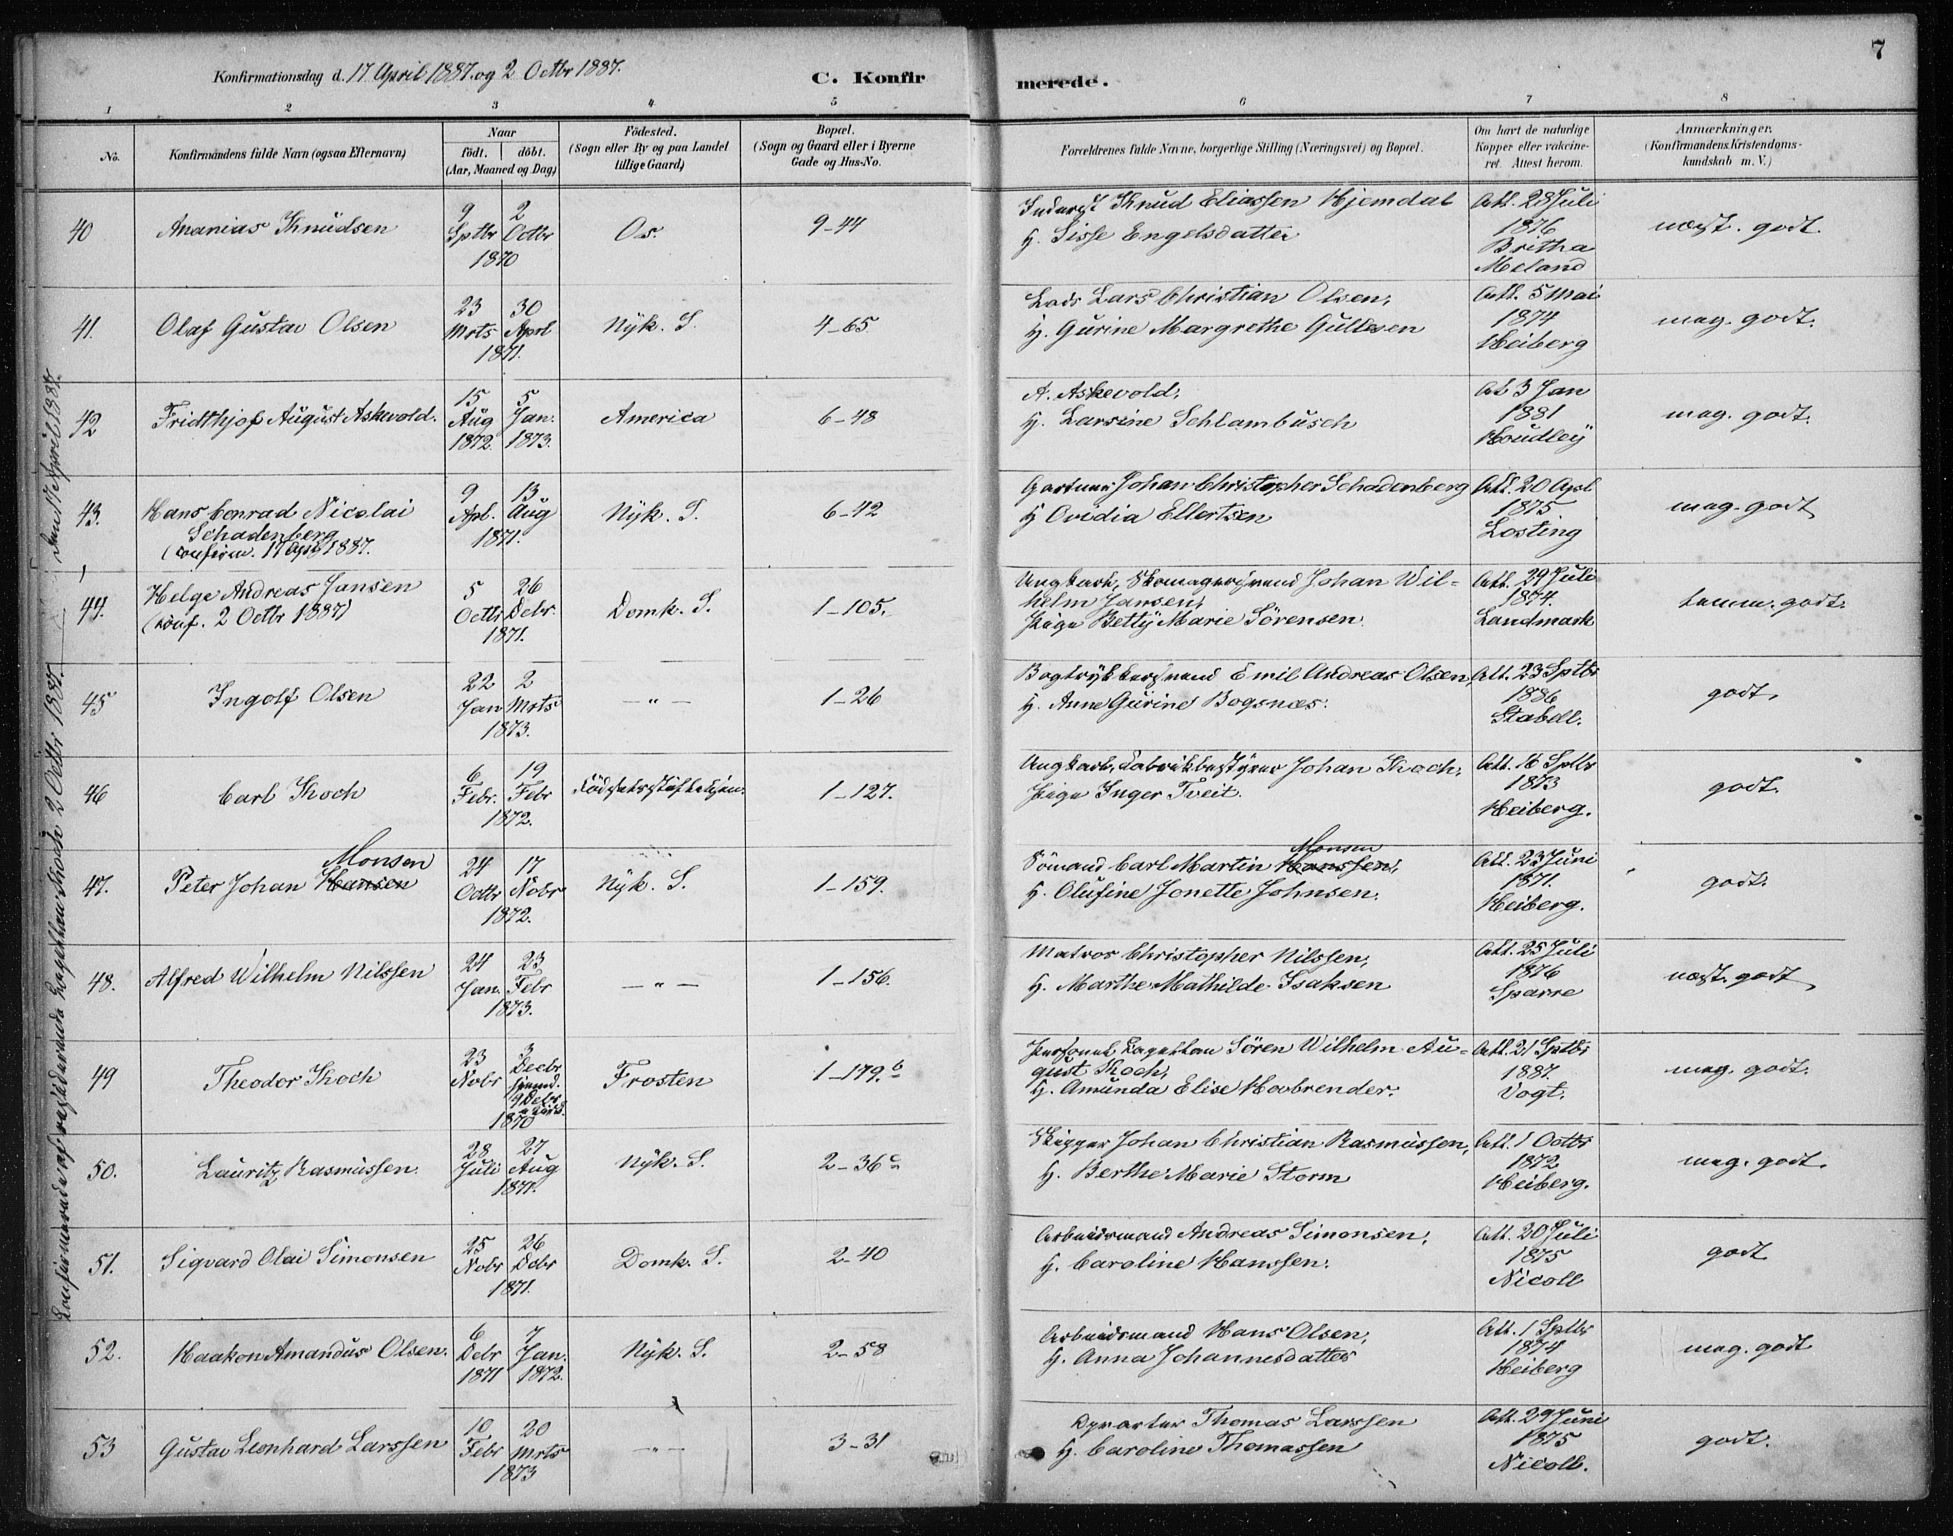 Konfirmationsdag d. 17 April 1887. og 2 Octbr 1887.
C. Konfir
merede.
7
1 2 3 4 5 6 7 8
No.
Konfirmandens fulde Navn (ogsaa Efternavn)
Naar
födt. döbt.
(Aar, Maaned og Dag)
Födested.
(Sogn eller By og paa Landet
tillige Gaard)
Bopæl.
(Sogn og Gaard eller i Byerne
Gade og Hus-No.
Forældrenes fulde Navne, borgerlige Stilling (Næringsvei) og Bopæl.
Om havt de naturlige
Kopper eller vakcine-
ret. Attest herom.
Anmærkninger.
(Konfirmandens Kristendoms-
kundskab m. V.)
40 Ananias Knudsen
9 Sptbr 2 Octbr 1870
Os.
9-44
Inderst Knud Eliassen Hjemdal
H. Sisse Engelsdatter
Att. 28 Juli
1876
Britha
Meland
næst. godt.
41. Olaf Gustav Olsen
23 Mrts 30 Aprl 1871.
Nyk. S.
4-65
Lods Lars Christian Olsen,
H. Gurine Margrethe Gullesen
Att. 5 Mai
1874
Heiberg
meg. godt.
42 Fridthjof August Askevold.
15 Aug 1872. 5 Jan. 1873.
America
6-48
A. Askevold,
H. Larsine Schlambusch
At 3 Jan
1881
Houdley
meg. godt.
43. Hans Conrad Nicolai
Schadenberg
(confirm. 17 Apr 1887.
9 Apl. 13 Aug 1871.
Nyk. S.
6-42
Gartner Johan Christopher Schadenberg
H Ovidia Ellertsen
Att. 20 Apl
1875
Losting
meg. godt
44. Helge Andreas Jansen
(conf. 2 Octbr 1887)
5 Octbr 26 Debr. 1871.
Domk. S.
1-105.
Ungkarl, Skomagersvend Johan Wil-
helm Jansen,
Pige Betty Marie Sörensen.
Att. 29 Juli
1874.
Landmark
temm. godt.
45 Ingolf Olsen
22 Jan 2 Mrts 1873.
— " —
1-26
Bogtrykkersvend Emil Andreas Olsen,
H. Anne Gurine Bogsnæs.
Att. 23 Sptbr
1886
Stabell.
godt.
46 Carl Koch
6 Febr. 19 Febr 1872.
Födselsstiftelsen.
1-127.
Ungkarl, Fabrikbestyrer Johan Koch,
Pige Inger Tveit.
Att. 16 Sptbr
1873
Heiberg.
godt.
Monsen
47. Peter Johan Hansen
24 Octbr 17 Nobr 1872.
Nyk. S.
1-159.
Monsen
Sömand Carl Martin Hanssen,
H. Olufine Jonette Johnsen.
Att. 23 Juni
1871.
Heiberg.
godt.
48. Alfred Wilhelm Nilssen
24 Jan. 23 Febr 1873.
— " —
1-156.
Matros Christopher Nilssen,
H. Marthe Mathilde Isaksen
Att. 25 Juli
1876
Sparre
næst. godt
49 Theodor Koch
23 Nobr 3 Decbr 9 Debr 1870
Frosten
1-179.b
Personel Capellan Sören Wilhelm Au-
gust Koch,
H. Amunda Elise Hovbrender.
Att. 21 Sptbr
1887.
Vogt.
meg. godt.
50. Lauritz Rasmussen.
28 Juli 27 Aug 1871.
Nyk. S.
2-36 c
Skipper Johan Christian Rasmussen,
H. Berthe Marie Storm
Att. 1 Octbr
1872
Heiberg.
meg. godt.
51. Sigvard Olai Simonsen
25 Nobr 26 Debr 1871.
Domk. S.
2-40
Arbeidsmand Andreas Simonsen,
H. Caroline Hanssen.
Att. 20 Juli
1875
Nicoll
godt
52. Haakon Amandus Olsen.
6 Debr 1871 7 Jan. 1872.
Nyk. S.
2-58
Arbeidsmand Hans Olsen,
H. Anna Johannesdatter
Att. 1 Sptbr
1874
Heiberg
meg. godt
53 Gustav Leonhard Larssen
10 Febr 20 Mrts 1873
— " —
3-31
Thomas Larssen
H. Caroline Thomassen
Att. 29 Juni
1875
Nicoll.
godt.
Confirmerede af residerende Capellan Koch 2 Octbr 1887. — den 17 April 1887.